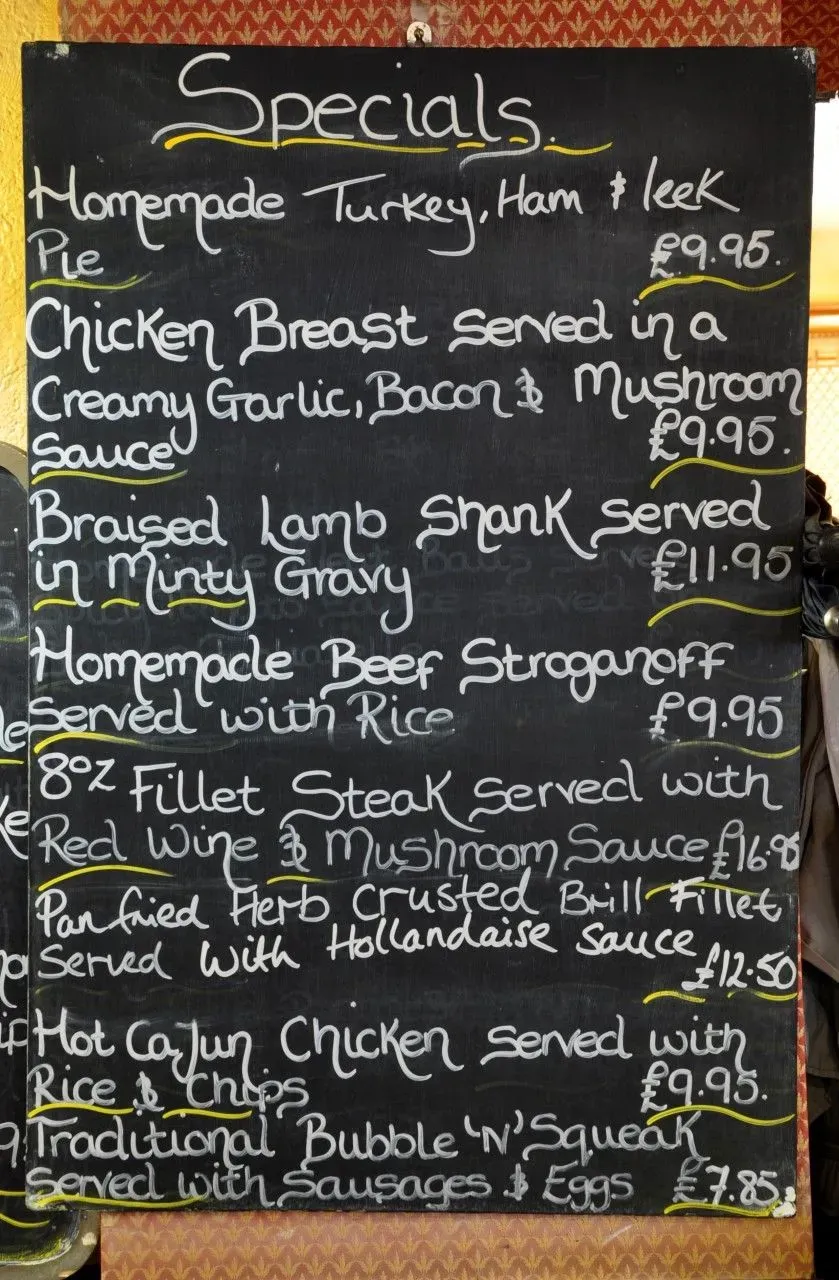 Specials.
Homemade Turkey, Ham & leek
Pie £9.95.
Chicken Breast served in a
Creamy Garlic, Bacon & Mushroom
Sauce £9.95.
Braised Lamb Shank served
in Minty Gravy £11.95
Homemade Beef Stroganoff
served with Rice £9.95
8oz Fillet Steak served with
Red Wine & Mushroom Sauce £16.95
Pan fried Herb Crusted Brill Fillet
Served with Hollandaise Sauce
£12.50
Hot Cajun Chicken served with
Rice & Chips £9.95.
Traditional Bubble 'N' Squeak
served with Sausages & Eggs £7.85